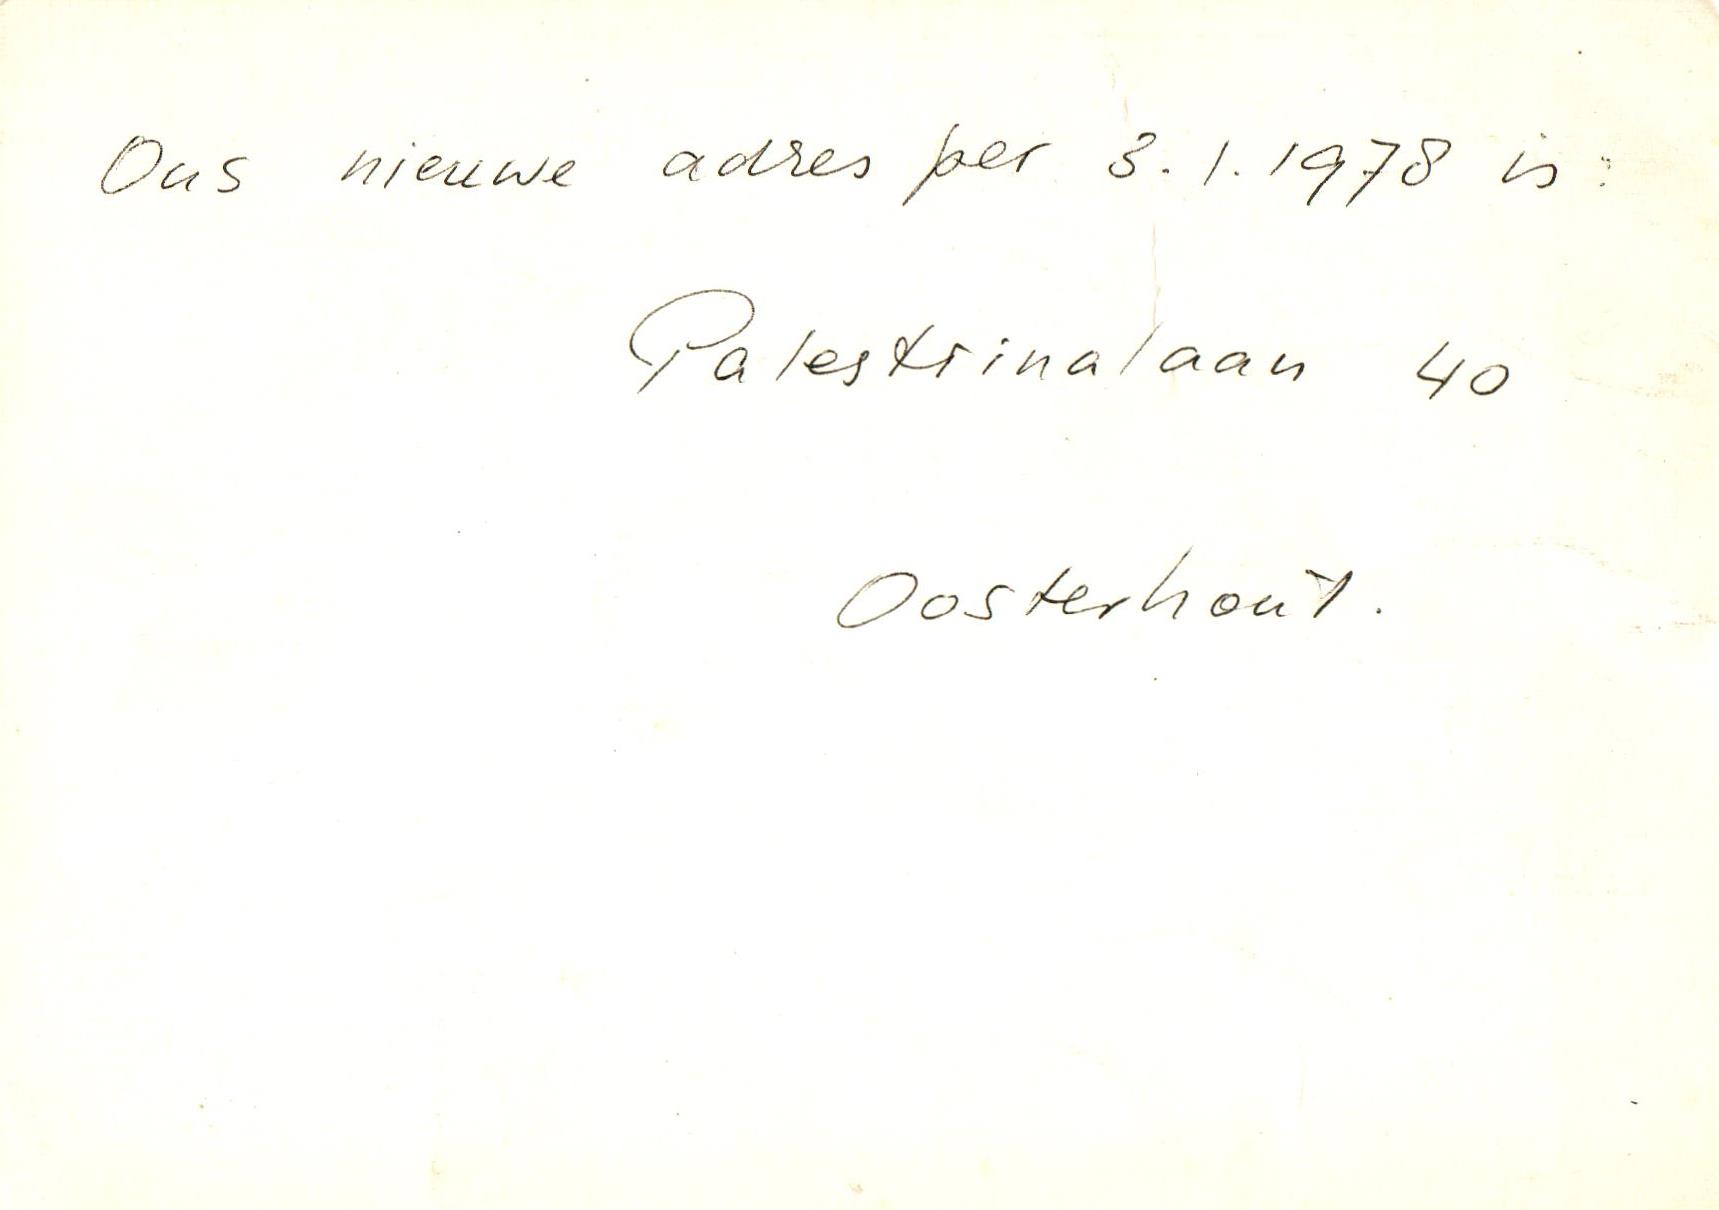 Ons nieuwe adres per 3.1.1978 is:
Palestrinalaan 40
Oosterhout.